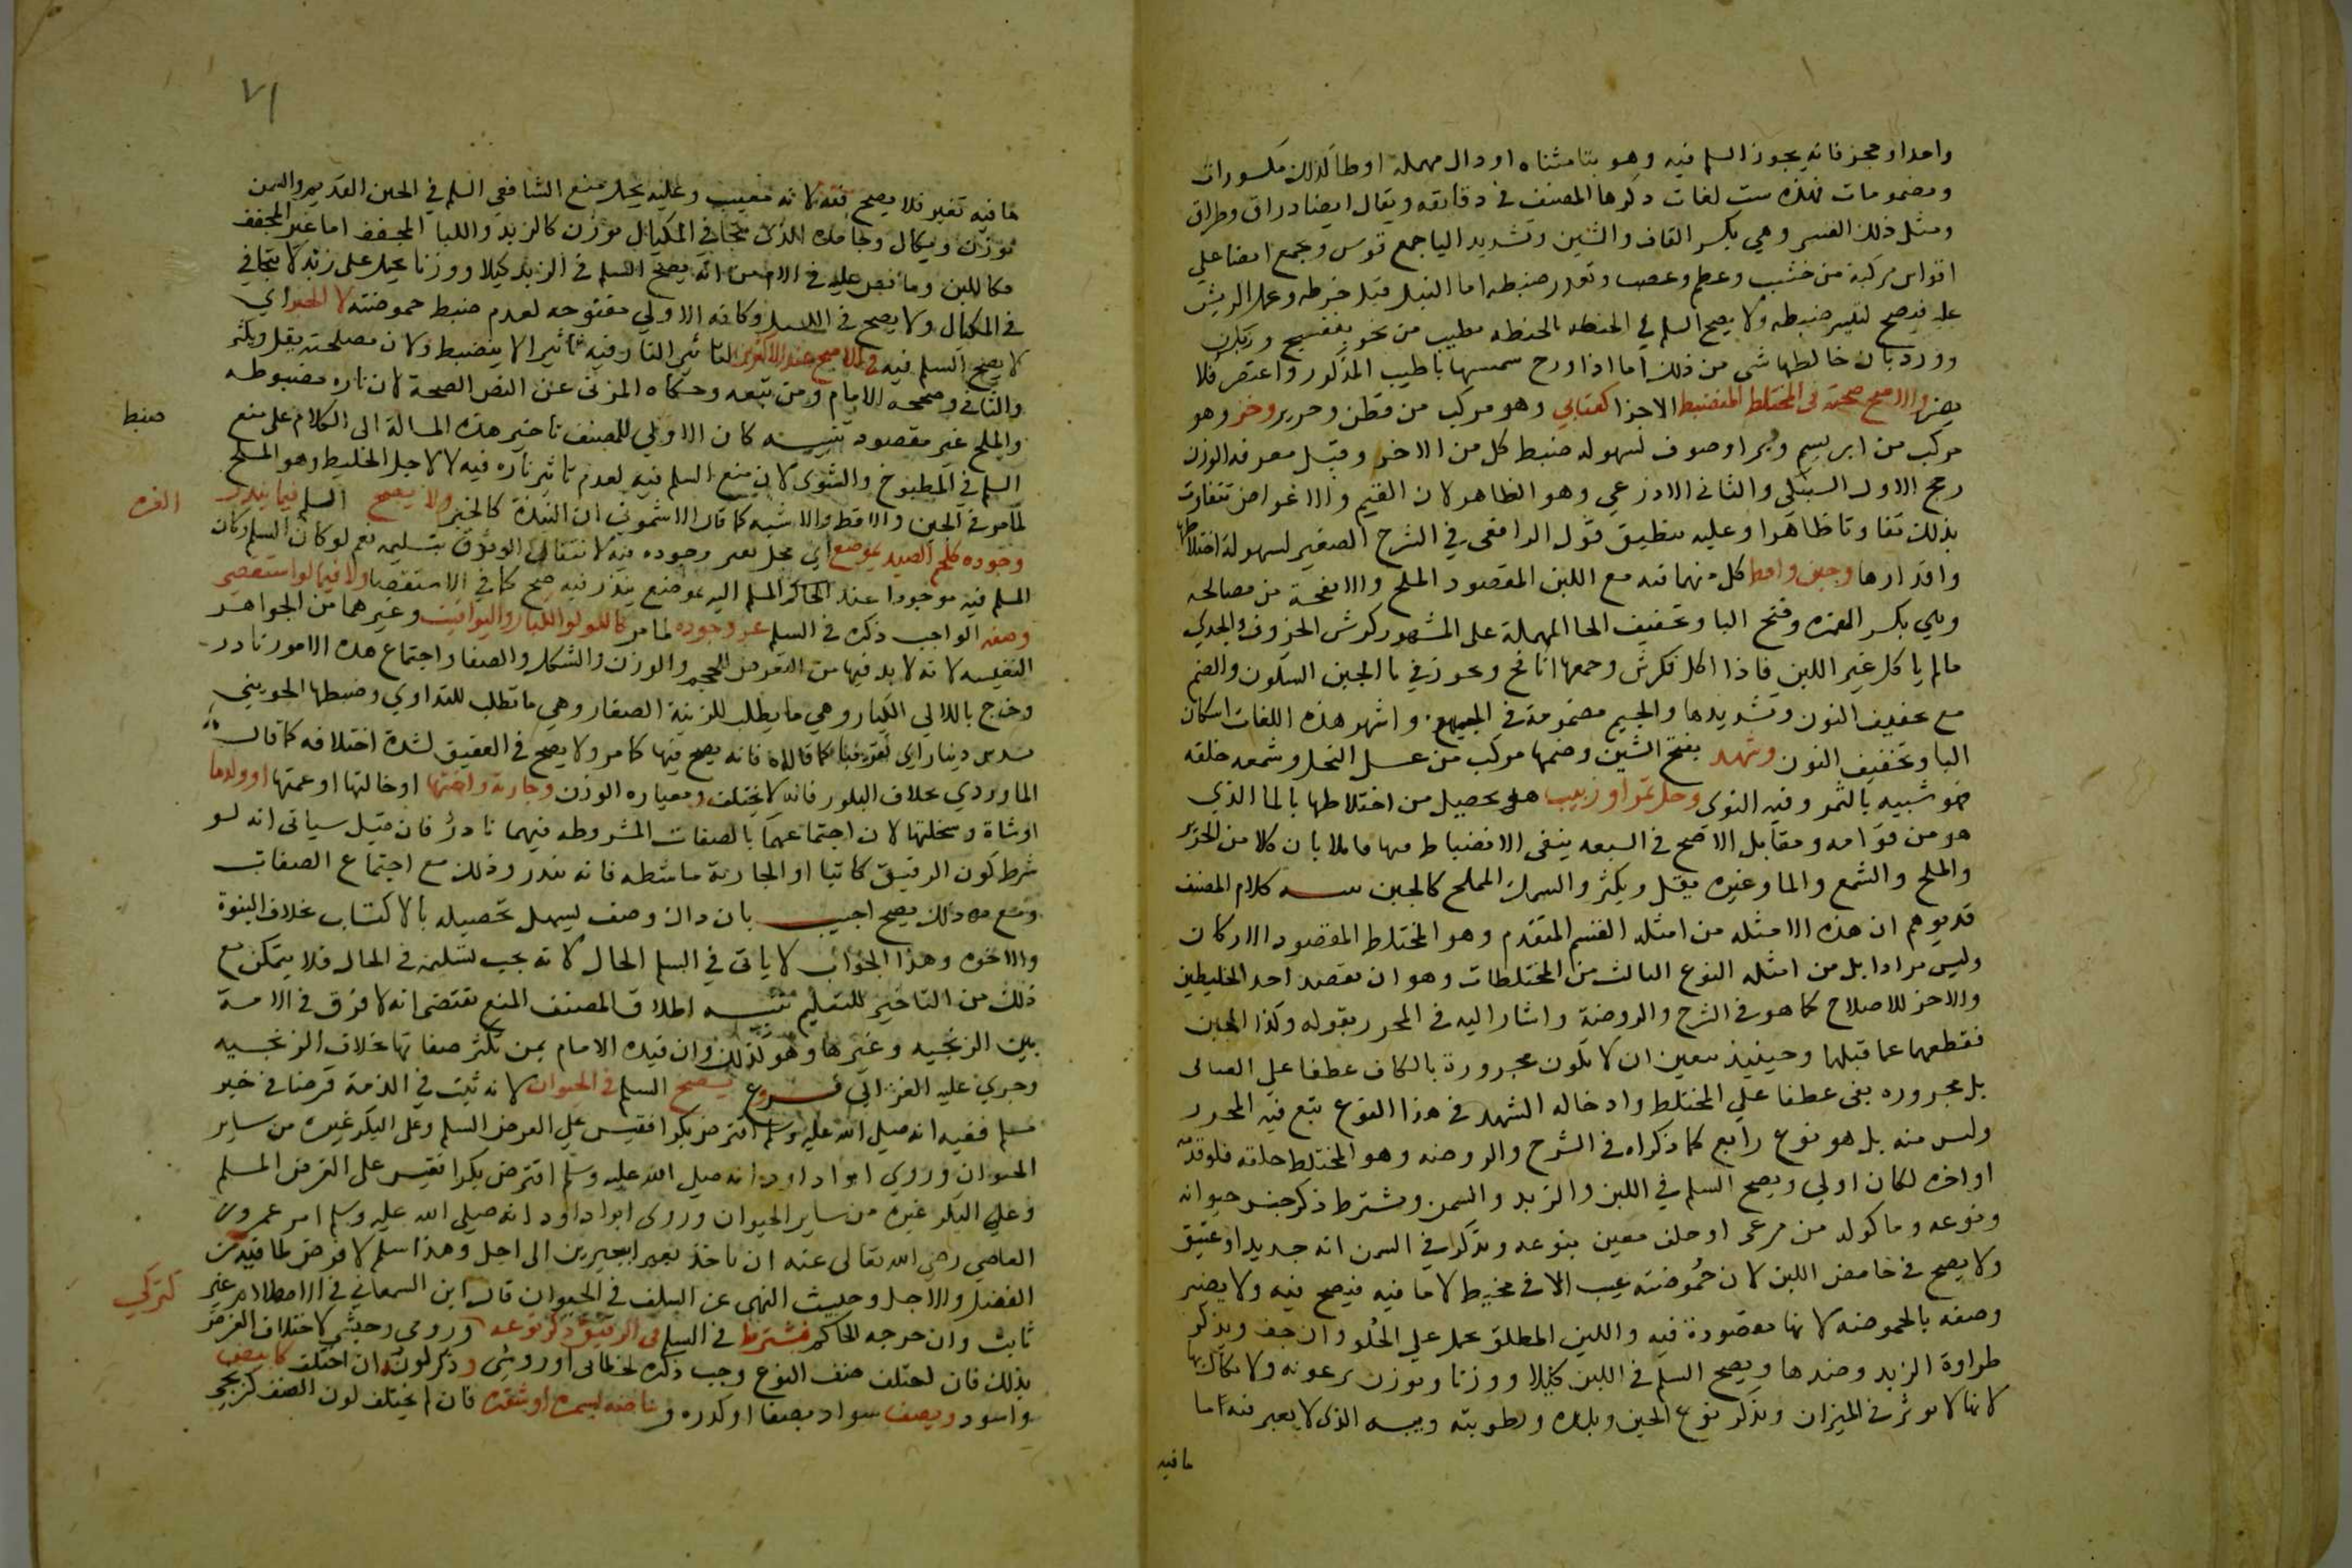 واحدا ومحجر فانه يجوز السلم فيه وهو بتا مثناه او دال مهملة او طا كذلك مكسورات
ومضمومات فهذه ست لغات ذكرها المصنف في دقايقه ويقال ايضا دراق وطراق
ومثل ذلك القسي وهي بكسر القاف والسين وتشديد اليا جمع قوس وتجمع ايضا على
اقواس مركبة من خشب وعظم وعصب وتعذر ضبطه اما النبل قبل خرطه وعمل الريش
عليه فيصح لتيسر ضبطه ولا يصح السلم في الحنطة
وورد بان خالطها شي من ذلك اما اذا اروح سمسمها باطيب المذكور واعتصر فلا
يضر والاصح صحته في المختلط المنضبط الاجزا كعتابي وهو مركب من قطن وحرير وخز وهو
مركب من ابريسم ووبر او صوف لسهولة ضبط كل من الاخر وقيل معرفة الوزن
رجح الاول السبكي والثاني الاذرعي وهو الظاهر لان القيم والاغراض تتفاوت
بذلك تفاوتا ظاهرا وعليه ينطبق قول الرافعي في الشرح الصغير لسهولة اختلاطها
واقدارها وجبن واقط كل منهما فيه مع اللبن المقصود الملح والانفحة من مصالحه
وهي بكسر الهمزة وفتح البا وتخفيف الحا المهملة على المشهور كرش الخروف والجدي
مالم ياكل غير اللبن فاذا اكل فكرش وجمعها انافح ويجوز في با الجبن السكون والضم
مع تخفيف النون وتشديدها والجيم مضمومة في الجميع واشهر هذه اللغات اسكان
البا وتخفيف النون وشهد بفتح الشين وضمها مركب من عسل النحل وشمعه خلقه
فهو شبيه بالتمر وفيه النوى وخل تمر او زبيب هو يحصيل من اختلاطها بالما الذي
هو من قوامه ومقابل الاصح في السبعه ينفي الانضباط فيها قايلا بان كلا من الخز
والملح والشمع والما وغيره يقل ويكثر والسمك المملح كالجبن تنبيه كلام المصنف
قد يوهم ان هذه الامثله من امثله القسم المتقدم وهو المختلط المقصود الاركان
وليس مرادا بل من امثله النوع الثالث من المختلطات وهو ان يقصد احد الخليطين
والاخر للاصلاح كما هو في الشرح والروضة واشار اليه في المحرر بقوله وكذا الجبن
فقطعهما عما قبلها وحينيذ يتعين ان لا تكون مجرورة بالكاف عطفا على العتابي
بل مجروره بفي عطفا على المختلط وادخاله الشهد في هذا النوع تبع فيه المحرر
وليس منه بل هو نوع رابع كما ذكراه في الشرح والروضه وهو المختلط خلقة فلو قدمه
او اخره لكان اولى ويصح السلم في اللبن والزبد والسمن ويشترط ذكر جنس حيوانه
ونوعه وماكوله من مرعى او علف معين بنوعه ويذكر في السمن انه جديد او عتيق
ولا يصح في حامض اللبن لان حموضته عيب الا في مخيض لا ما فيه فيصح فيه ولا يضر
وصفه بالحموضه لانها مقصودة فيه واللبن المطلق يحمل على الحلو وان جف ويذكر
طراوة الزبد وضدها ويصح السلم في اللبن كيلا ووزنا ويوزن برغوته ولا يكال بها
لانها لا توثر في الميزان ويذكر نوع الجبن وبلده ورطوبته ويبسه الذي لا يعير منه اما
ما فيه
٧١
ما فيه تغير فلا يصح فيه لانه معيب وعليه يحمل منع الشافعي السلم في الجبن القديم والسمن
يوزن ويكال وجامده الذي يتجافى المكيال يوزن كالزبد واللبا المجفف اما غير المجفف
فكاللبن وما نص عليه في الام من انه يصح السلم في الزبد كيلا ووزنا يحمل على زبد لا يتجافى
في المكيال ولا يصح في وكافه الاولى مفتوحه لعدم ضبط حموضته لا الخبز اي
لا يصح السلم فيه في الاصح عند الاكثرين لتاثير النار فيه تاثيرا لا ينضبط ولان مصلحته يقل ويكثر
والثاني وصححه الامام ومن تبعه وحكاه المزني عن النص الصحة لان ناره مضبوطه
والملح غير مقصود تنبيه كان الاولى للمصنف تاخير هذه المسالة الى الكلام على منع
ضبط
السلم في المطبوخ والشوى لان منع السلم فيه لعدم تاثير ناره فيه لا لاجل الخليط وهو الملح
لما مر في الجبن والاقط والاشبه كما قال الاشموني ان النيدة كالخبز ولا يصح السلم فيما يندر
وجوده كلحم الصيد بموضع اي محل يعز وجوده فيه لانتفاء الوثوق بتسليمه نعم لو كان السلم وكان
المسلم فيه موجودا عند الحاكم المسلم اليه بموضع يندر فيه صح كما في الاستقصا ولا فيما لو استقصي
وصفه الواجب ذكره في السلم عز وجوده لما مر كاللولو الكبار واليواقيت وغيرهما من الجواهر
النفيسه لانه لا بد فيها من التعرض للحجم والوزن والشكل والصفا واجتماع هذه الامور نادر
وخرج باللالي الكبار وهي ما يطلب للزينة الصغار وهي ما تطلب للتداوي وضبطها الجويني
بسدس دينار اي تقريبا كما قالاه فانه يصح فيها كما مر ولا يصح في العقيق لشدة اختلافه كما قاله
الماوردي بخلاف البلور فانه لا يختلف ومعياره الوزن وجارية واختها او خالتها او عمتها او ولدها
او شاة وسخلتها لان اجتماعهما بالصفات المشروطه فيهما نادر فان قيل سياتي انه لو
شرط كون الرقيق كاتبا او الجارية ماشطه فانه يندر وذلك مع اجتماع الصفات
ومع ذلك يصح اجيب بان ذاك وصف يسهل تحصيله بالاكتساب بخلاف البنوة
والاخوه وهذا الجواب لا ياتي في السلم الحال لانه يجب تسليمه في الحال فلا يتمكن مع
ذلك من التاخير للتعليم تنبيه اطلاق المصنف المنع يقتضي انه لا فرق في الامة
بين الزنجيه وغيرها وهو كذلك وان قيده الامام بمن تكثر صفاتها بخلاف الزنجيه
وجرى عليه الغزالي فروع يصح السلم في الحيوان لانه ثبت في الذمة قرضا في خبر
مسلم ففيه انه صلى الله عليه وسلم اقترض بكرا فقيس على القرض السلم وعلى البكر غيره من ساير
الحيوان وروى ابو داود انه صلى الله عليه وسلم اقترض بكرا فقيس على القرض المسلم
وعلى البكر غيره من ساير الحيوان وروى ابوا داود انه صلى الله عليه وسلم امر عمرو بن
العاصي رضي الله تعالى عنه ان ياخذ بعيرا ببعيرين الى اجل وهذا سلم لا قرض لما فيه من
الفضل والاجل وحديث النهي عن السلف في الحيوان قال ابن السمعاني في الاصطلام غير
ثابت وان خرجه الحاكم فيشترط في السلم في الرقيق ذكر نوعه ورومي وحبشي لاختلاف الغرض
كتركي
بذلك فان اختلف صنف النوع وجب ذكره لخطائي او رومي وذكر لونه ان اختلف كابيض
واسود ويصف سواد بصفا او كدره وبياضه بسمرة او شقرة فان لم يختلف لون الصنف كزنجي